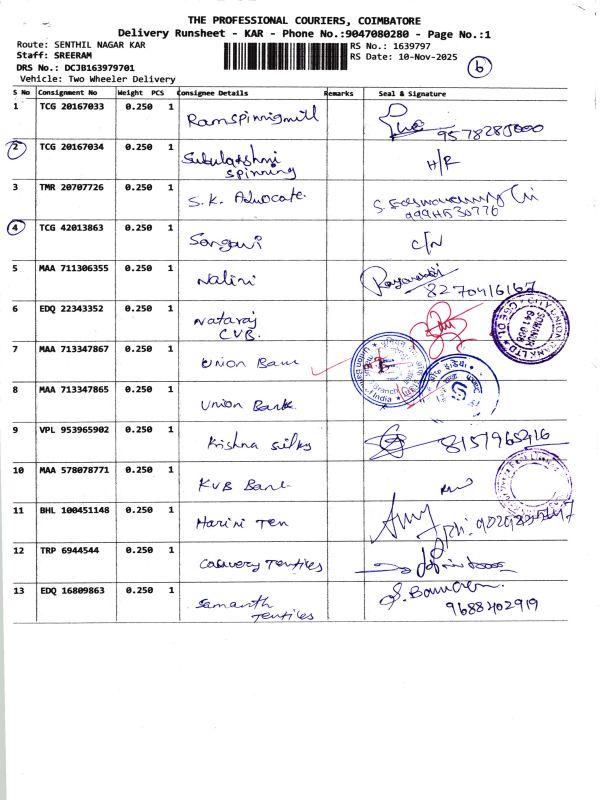 THE PROFESSIONAL COURIERS, COIMBATORE
Delivery Runsheet - KAR - Phone No.:9047080280 - Page No.:1
Route: SENTHIL NAGAR KAR RS No.: 1639797
Staff: SREERAM RS Date: 10-Nov-2025
DRS No.: DCJB163979701 6
Vehicle: Two Wheeler Delivery
S No Consignment No Weight PCS Consignee Details Remarks Seal & Signature
1 TCG 20167033 0.250 1 Ramspinnigmill
2 TCG 20167034 0.250 1 Subulakshmi spinning H/R
3 TMR 20707726 0.250 1 S.K. Advocate.
4 TCG 42013863 0.250 1 Sangavi C/N
5 MAA 711306355 0.250 1 Nalini 8270416167
6 EDQ 22343352 0.250 1 Nataraj CUB.
7 MAA 713347867 0.250 1 Union Bank
8 MAA 713347865 0.250 1 Union Bank
9 VPL 953965902 0.250 1 Krishna silks 8157965416
10 MAA 578078771 0.250 1 KVB Bank
11 BHL 100451148 0.250 1 Harini Tex
12 TRP 6944544 0.250 1 Cauvery Textiles
13 EDQ 16809863 0.250 1 Samanth Textiles 9688402919